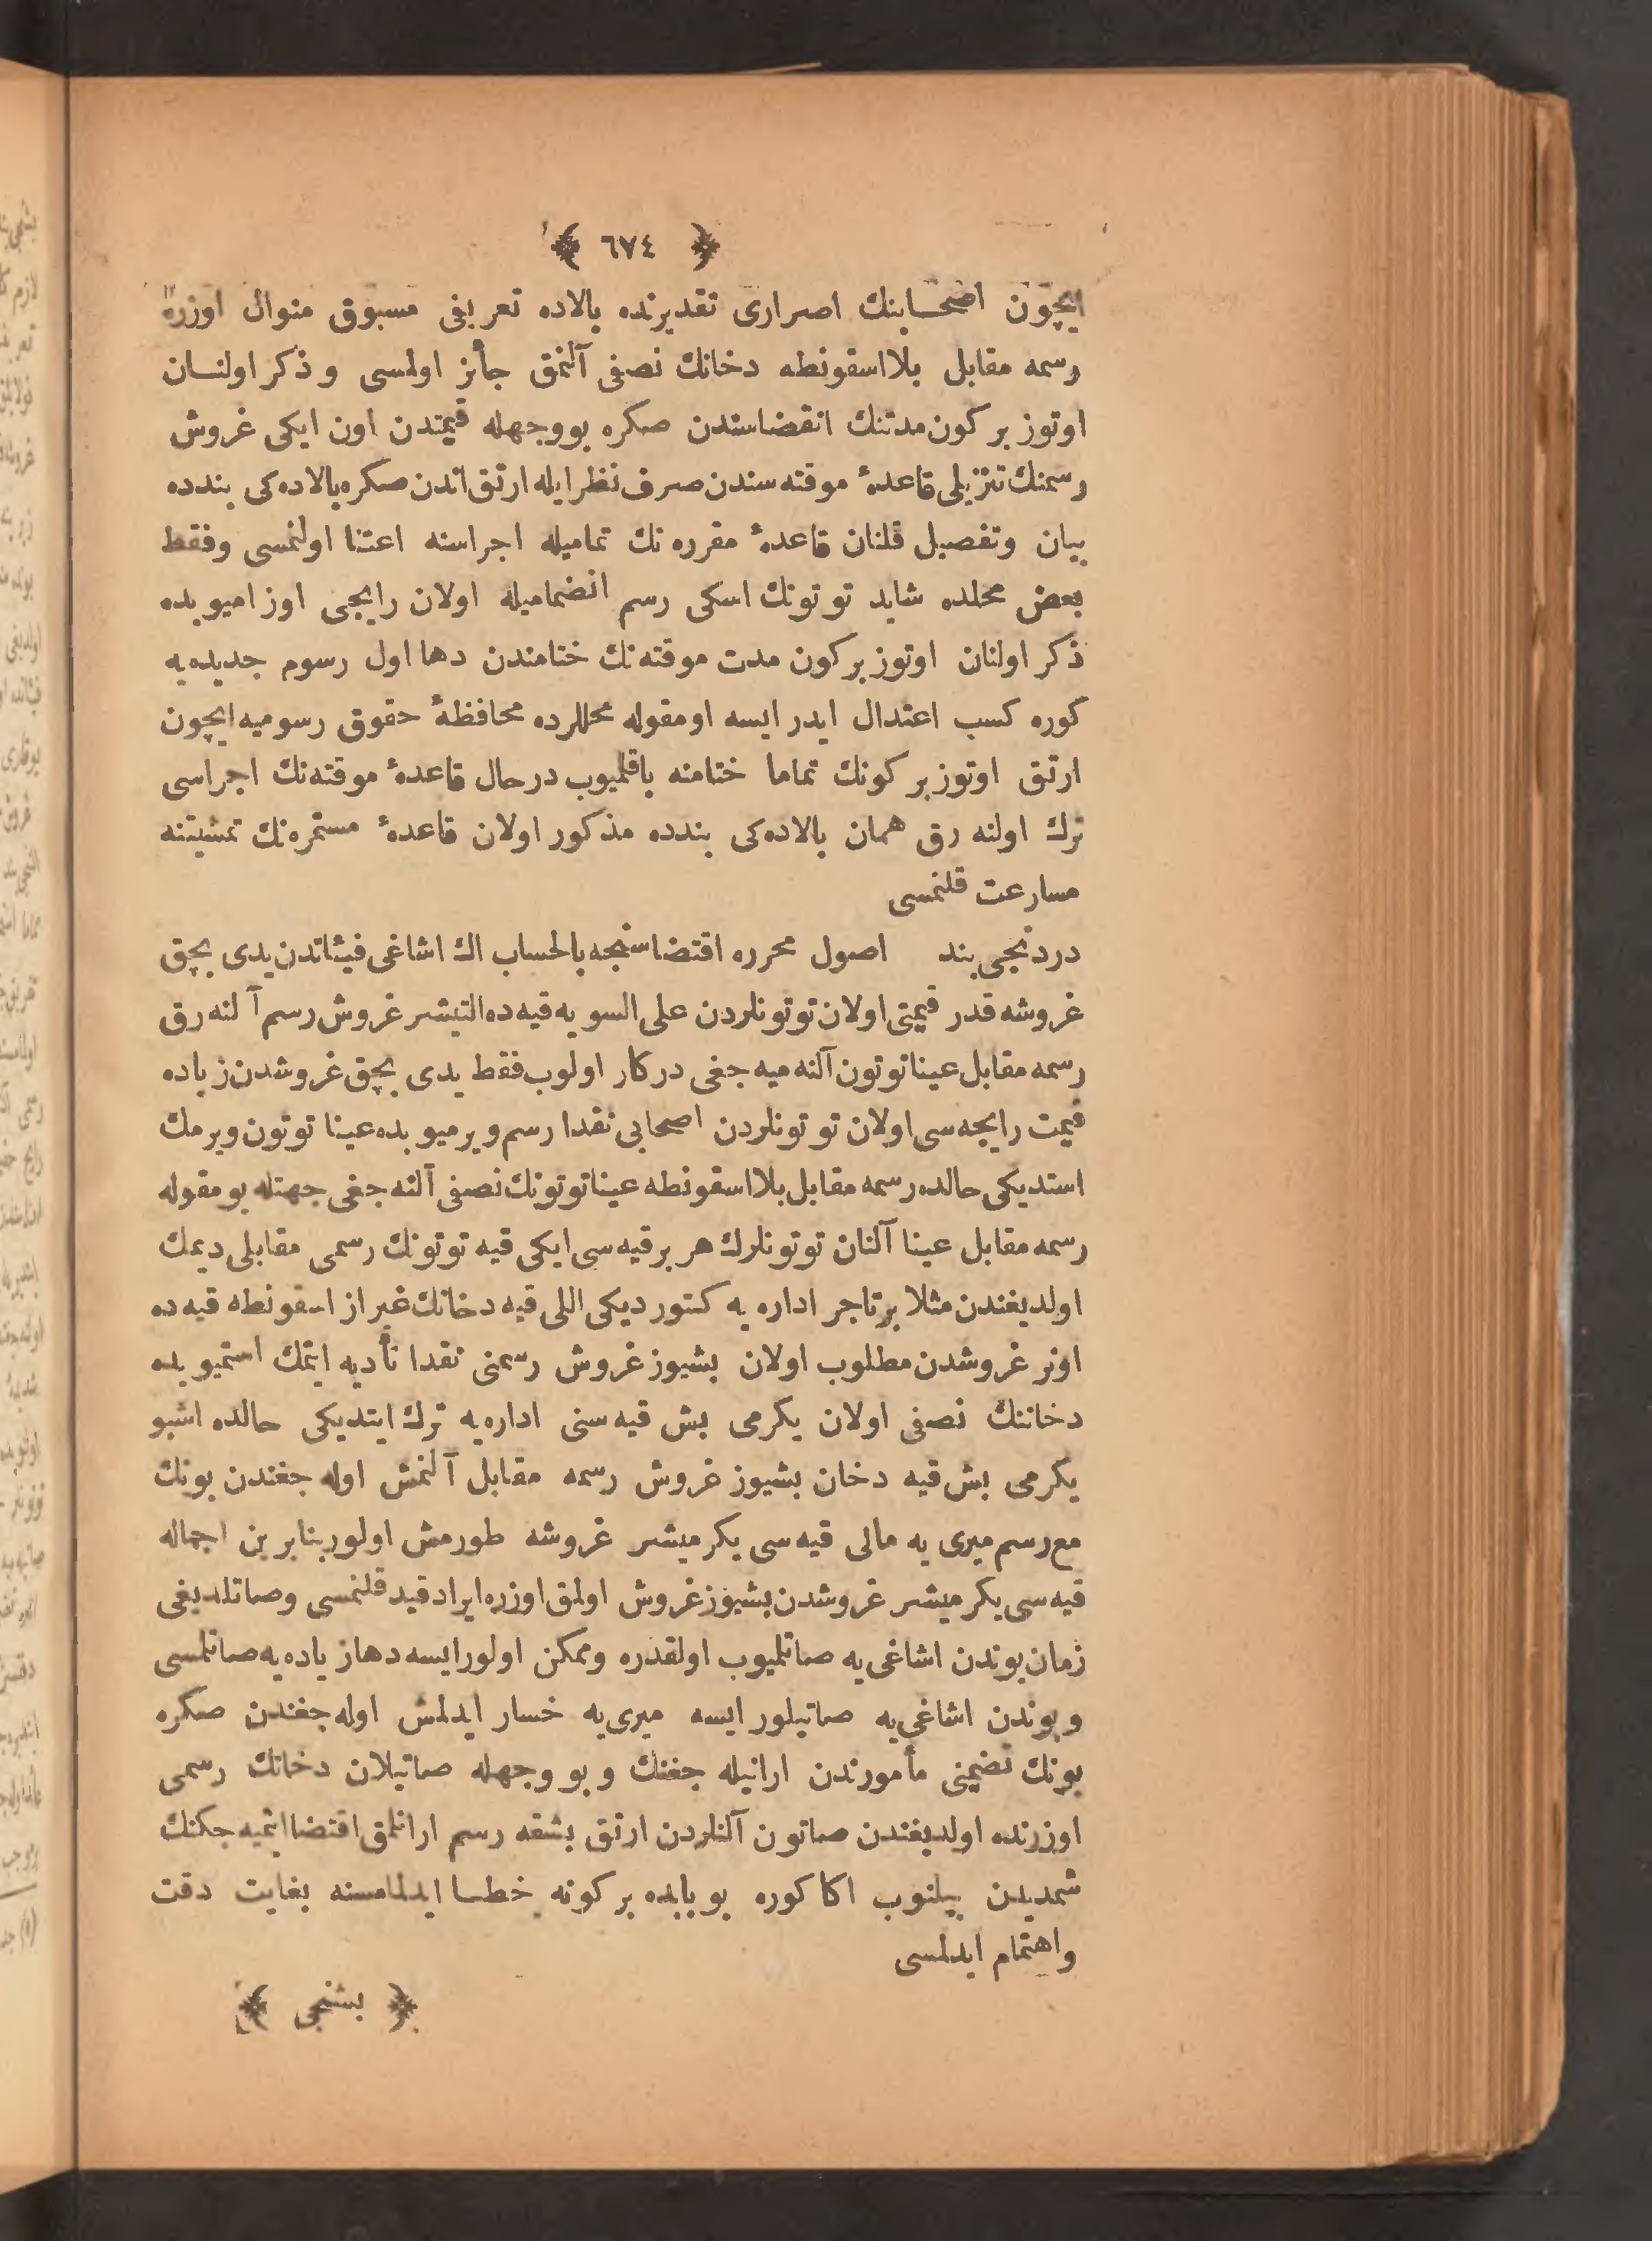 ﴿ ٦٧٤ ﴾
ایچون اصحابنك اصراری تقدیرنده بالاده تعریفی مسبوق منوال اوزره
رسمه مقابل بلااسقونطه دخانك نصفی آلنمق جائز اولمسی و ذكر اولنان
اوتوز بر كون مدتنك انقضاسندن صكره بووجهله قیمتدن اون ایكی غروش
رسمنك تنزیلی قاعدهٔ موقته سندن صرف نظر ایله ارتق اندن صكره بالاده كی بندده
بیان وتفصیل قلنان قاعدهٔ مقرره نك تمامیله اجراسنه اعتنا اولنمسی وفقط
بعض محلده شاید توتونك اسكی رسم انضمامیله اولان رایجی اوزامیوبده
ذكر اولنان اوتوز بر كون مدت موقته نك ختامندن دها اول رسوم جدیدهیه
كوره كسب اعتدال ایدر ایسه اومقوله محللرده محافظهٔ حقوق رسومیه ایچون
ارتق اوتوز بر كونك تماما ختامنه باقلمیوب درحال قاعدهٔ موقته نك اجراسی
ترك اولنه رق همان بالاده كی بندده مذكور اولان قاعدهٔ مستمره نك تمشیتنه
مسارعت قلنمسی
دردنجی بند اصول محرره اقتضاسنجه بالحساب اك اشاغی فیئاتدن یدی بچق
غروشه قدر قیمتی اولان توتونلردن علی السویه قیه ده التیشر غروش رسم آلنه رق
رسمه مقابل عینا توتون آلنه میه جغی دركار اولوب فقط یدی بچق غروشدن زیاده
قیمت رایجه سی اولان توتونلردن اصحابی نقدا رسم ویرمیوبده عینا توتون ویرمك
استدیكی حالده رسمه مقابل بلااسقونطه عینا توتونك نصفی آلنه جغی جهتله بو مقوله
رسمه مقابل عینا آلنان توتونلرك هر بر قیه سی ایكی قیه توتونك رسمی مقابلی دیمك
اولدیغندن مثلا بر تاجر اداره یه كتوردیكی اللی قیه دخانك غیر از اسقونطه قیه ده
اونر غروشدن مطلوب اولان بشیوز غروش رسمنی نقدا تأدیه ایتمك استمیوبده
دخاننك نصفی اولان یكرمی بش قیه سنی اداره یه ترك ایتدیكی حالده اشبو
یكرمی بش قیه دخان بشیوز غروش رسمه مقابل آلنمش اوله جغندن بونك
مع رسم میری یه مالی قیه سی یكرمیشر غروشه طورمش اولور بنابرین اجماله
قیه سی یكرمیشر غروشدن بشیوز غروش اولمق اوزره ایراد قید قلنمسی وصاتلدیغی
زمان بوندن اشاغی یه صاتلمیوب اولقدره وممكن اولورایسه دهازیاده یه صاتلمسی
وبوندن اشاغی یه صاتیلور ایسه میری یه خسار ایدلمش اوله جغندن صكره
بونك تضمینی مأموردن ارانیله جغنك وبووجهله صاتیلان دخانك رسمی
اوزرنده اولدیغندن صاتون آلنلردن ارتق بشقه رسم ارانلمق اقتضا ایتمیه جكنك
شمدیدن بیلنوب اكا كوره بو بابده بر كونه خطا ایدلمامسنه بغایت دقت
واهتمام ایدلمسی
﴿ بشنجی ﴾